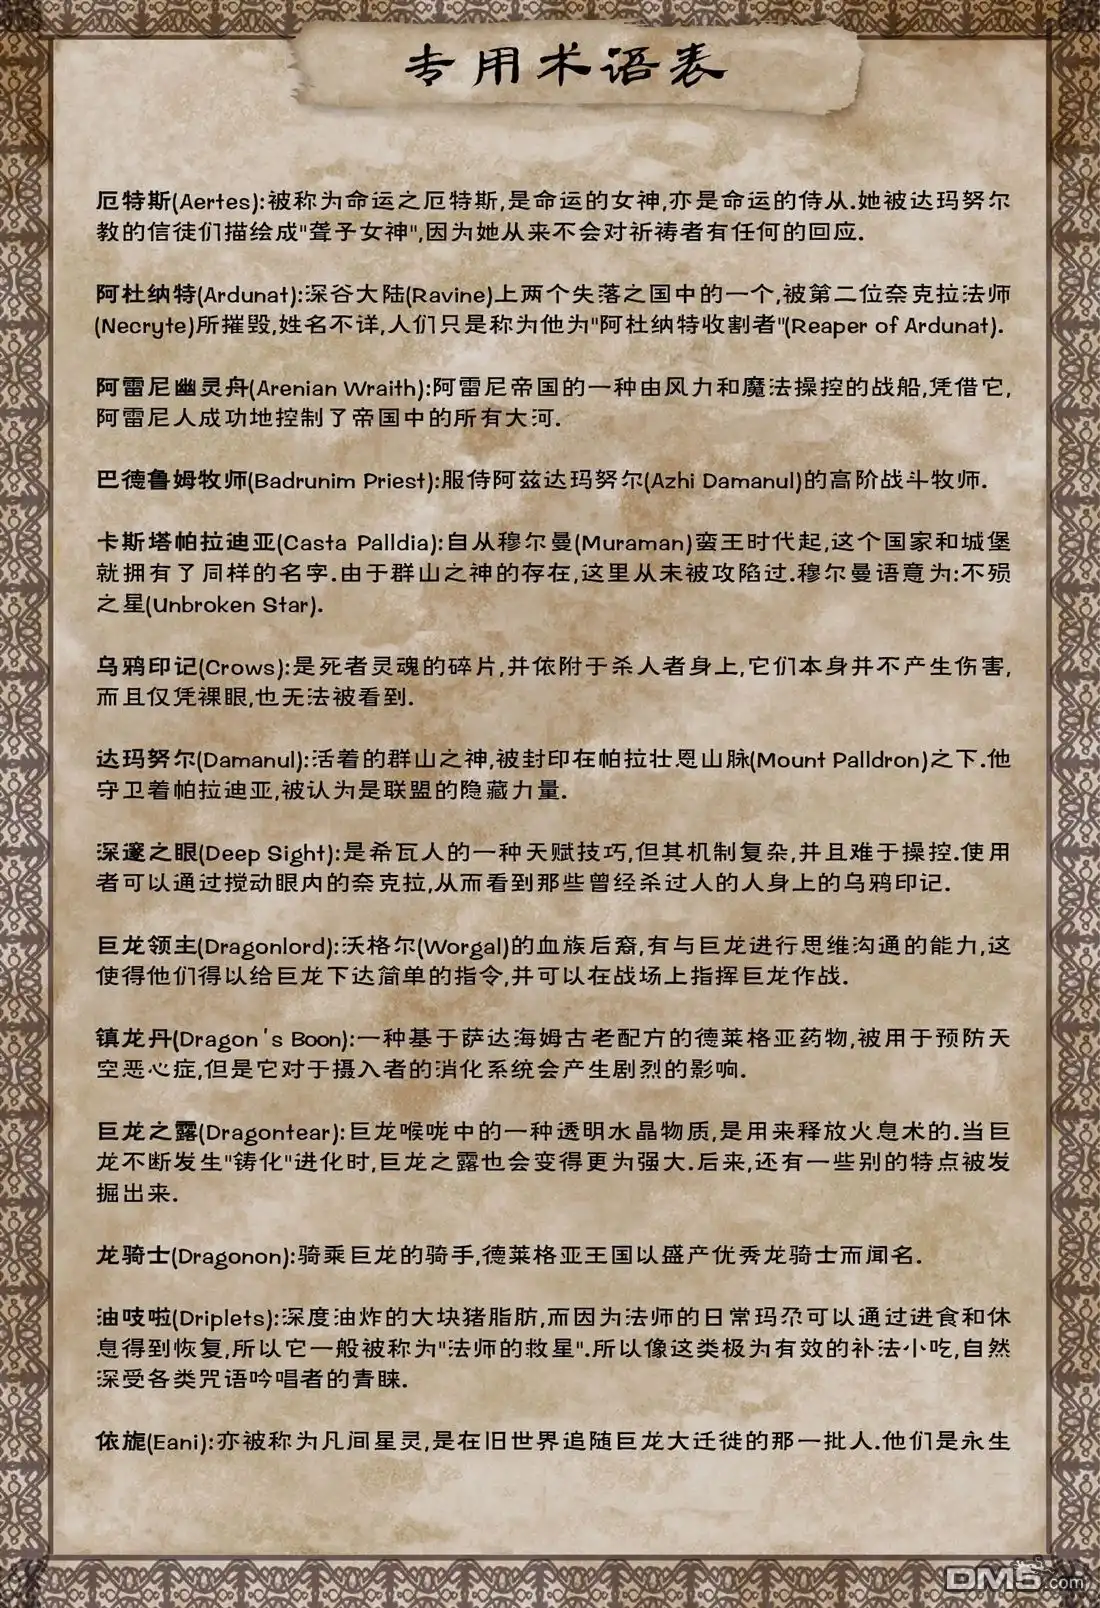 专用术语表
厄特斯(Aertes):被称为命运之厄特斯,是命运的女神,亦是命运的侍从.她被达玛努尔
教的信徒们描绘成"聋子女神",因为她从来不会对祈祷者有任何的回应.
阿杜纳特(Ardunat):深谷大陆(Ravine)上两个失落之国中的一个,被第二位奈克拉法师
(Necryte)所摧毁,姓名不详,人们只是称为他为"阿杜纳特收割者"(Reaper of Ardunat).
阿雷尼幽灵舟(Arenian Wraith):阿雷尼帝国的一种由风力和魔法操控的战船,凭借它,
阿雷尼人成功地控制了帝国中的所有大河.
巴德鲁姆牧师(Badrunim Priest):服侍阿兹达玛努尔(Azhi Damanul)的高阶战斗牧师.
卡斯塔帕拉迪亚(Casta Palldia):自从穆尔曼(Muraman)蛮王时代起,这个国家和城堡
就拥有了同样的名字.由于群山之神的存在,这里从未被攻陷过.穆尔曼语意为:不殒
之星(Unbroken Star).
乌鸦印记(Crows):是死者灵魂的碎片,并依附于杀人者身上,它们本身并不产生伤害,
而且仅凭裸眼,也无法被看到.
达玛努尔(Damanul):活着的群山之神,被封印在帕拉壮恩山脉(Mount Palldron)之下.他
守卫着帕拉迪亚,被认为是联盟的隐藏力量.
深邃之眼(Deep Sight):是希瓦人的一种天赋技巧,但其机制复杂,并且难于操控.使用
者可以通过搅动眼内的奈克拉,从而看到那些曾经杀过人的人身上的乌鸦印记.
巨龙领主(Dragonlord):沃格尔(Worgal)的血族后裔,有与巨龙进行思维沟通的能力,这
使得他们得以给巨龙下达简单的指令,并可以在战场上指挥巨龙作战.
镇龙丹(Dragon's Boon):一种基于萨达海姆古老配方的德莱格亚药物,被用于预防天
空恶心症,但是它对于摄入者的消化系统会产生剧烈的影响.
巨龙之露(Dragontear):巨龙喉咙中的一种透明水晶物质,是用来释放火息术的.当巨
龙不断发生"铸化"进化时,巨龙之露也会变得更为强大.后来,还有一些别的特点被发
掘出来.
龙骑士(Dragonon):骑乘巨龙的骑手,德莱格亚王国以盛产优秀龙骑士而闻名.
油吱啦(Driplets):深度油炸的大块猪脂肪,而因为法师的日常玛尕可以通过进食和休
息得到恢复,所以它一般被称为"法师的救星".所以像这类极为有效的补法小吃,自然
深受各类咒语吟唱者的青睐.
依旎(Eani):亦被称为凡间星灵,是在旧世界追随巨龙大迁徙的那一批人.他们是永生
DM5.com